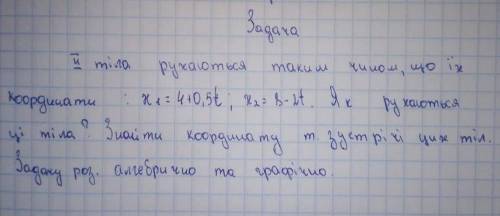 Задача
II тіла рухаються таким чином, що їх
координати : x₁ = 4+0,5t ; x₂ = 8-2t. Як рухаються
ці тіла? Знайти координату т. зустрічі цих тіл.
Задачу роз. алгебрично та графічно.